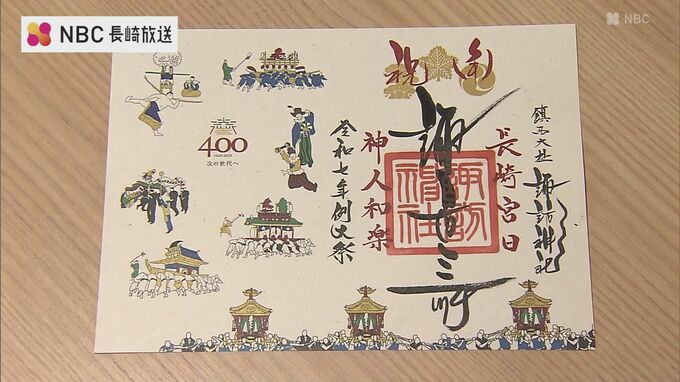 NBC 長崎放送
NBC
祝
鎮西大社
諏訪神社
長崎宮日
諏訪神社
神人和楽
令和七年例大祭
400
1625-2025
次の世代へ